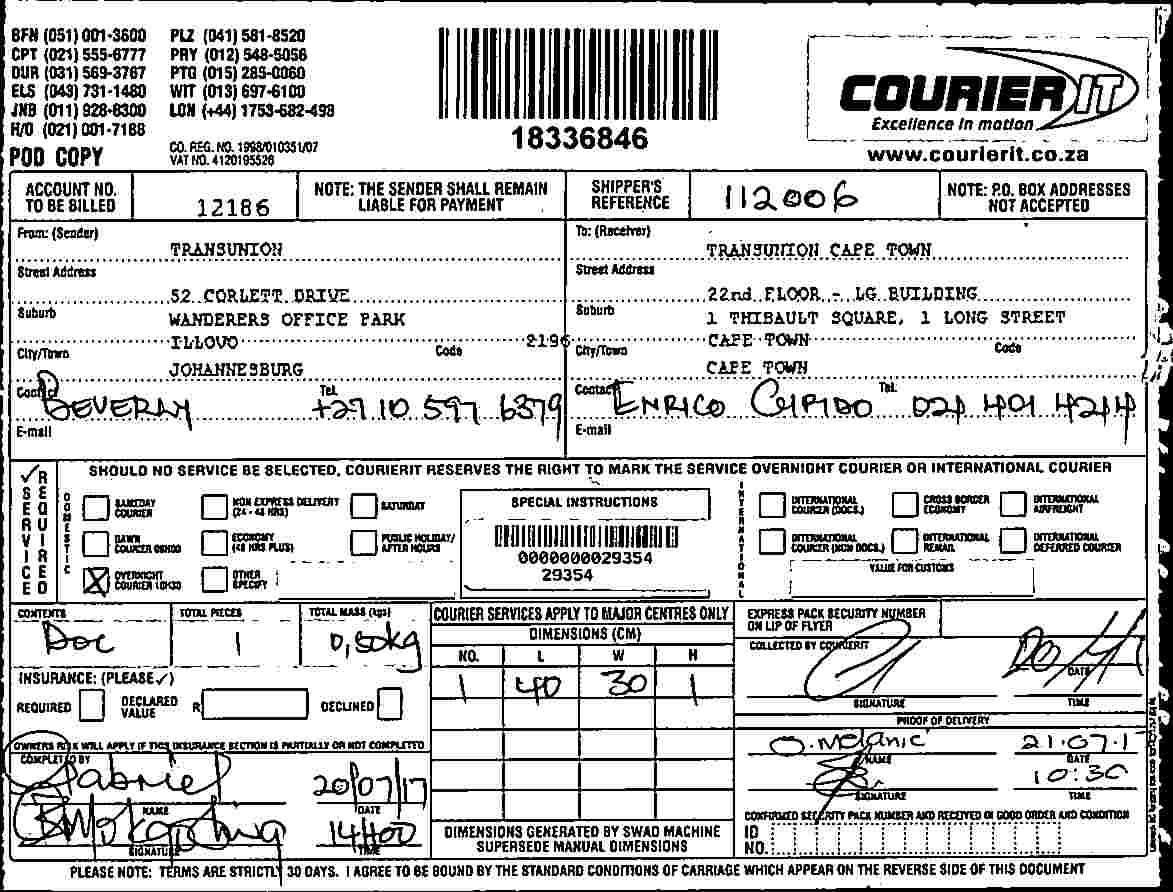 BFN (051) 001-3600 PLZ (041) 581-8520
CPT (021) 555-6777 PRY (012) 548-5056
DUR (031) 569-3767 PTG (015) 285-0060
ELS (043) 731-1480 WIT (013) 697-6100
JNB (011) 928-6300 LON (+44) 1753-682-498
H/O (021) 001-7188
POD COPY
CO. REG. NO. 1998/010351/07
VAT NO. 4120195526
18336846
COURIER IT
Excellence in motion
www.courierit.co.za
ACCOUNT NO. TO BE BILLED 12186
NOTE: THE SENDER SHALL REMAIN LIABLE FOR PAYMENT
SHIPPER'S REFERENCE 112006
NOTE: P.O. BOX ADDRESSES NOT ACCEPTED
From: (Sender)
TRANSUNION
Street Address
52 CORLETT DRIVE
Suburb
WANDERERS OFFICE PARK
ILLOVO
City/Town Code 2196
JOHANNESBURG
Contact BEVERLY Tel. +27 10 597 6379
E-mail
To: (Receiver)
TRANSUNION CAPE TOWN
Street Address
22nd FLOOR - LG BUILDING
Suburb
1 THIBAULT SQUARE, 1 LONG STREET
CAPE TOWN
City/Town Code
CAPE TOWN
Contact ENRICO Tel. 021 401 4214
E-mail
SHOULD NO SERVICE BE SELECTED, COURIERIT RESERVES THE RIGHT TO MARK THE SERVICE OVERNIGHT COURIER OR INTERNATIONAL COURIER
✓ SERVICE REQUIRED
DOMESTIC
SAMEDAY COURIER
NON EXPRESS DELIVERY (24 - 48 HRS)
SATURDAY
DAWN COURIER 08H00
ECONOMY (48 HRS PLUS)
PUBLIC HOLIDAY/ AFTER HOURS
OVERNIGHT COURIER 10H30
OTHER SPECIFY
SPECIAL INSTRUCTIONS
0000000029354
29354
INTERNATIONAL
INTERNATIONAL COURIER (DOCS.)
CROSS BORDER ECONOMY
INTERNATIONAL AIRFREIGHT
INTERNATIONAL COURIER (NON DOCS.)
INTERNATIONAL REMAIL
INTERNATIONAL DEFERRED COURIER
VALUE FOR CUSTOMS
CONTENTS TOTAL PIECES TOTAL MASS (kgs)
Doc 1 0,50kg
INSURANCE: (PLEASE ✓)
REQUIRED DECLARED VALUE R DECLINED
OWNERS RISK WILL APPLY IF THIS INSURANCE SECTION IS PARTIALLY OR NOT COMPLETED
COMPLETED BY
Gabriel 20/07/17
NAME DATE
14H00
SIGNATURE TIME
COURIER SERVICES APPLY TO MAJOR CENTRES ONLY
DIMENSIONS (CM)
NO. L W H
1 40 30 1
DIMENSIONS GENERATED BY SWAD MACHINE
SUPERSEDE MANUAL DIMENSIONS
EXPRESS PACK SECURITY NUMBER ON LIP OF FLYER
COLLECTED BY COURIERIT
DATE
SIGNATURE TIME
PROOF OF DELIVERY
O.Melanie 21.07.17
NAME DATE
10:30
SIGNATURE TIME
CONFIRMED SECURITY PACK NUMBER AND RECEIVED IN GOOD ORDER AND CONDITION
ID NO.
PLEASE NOTE: TERMS ARE STRICTLY 30 DAYS. I AGREE TO BE BOUND BY THE STANDARD CONDITIONS OF CARRIAGE WHICH APPEAR ON THE REVERSE SIDE OF THIS DOCUMENT